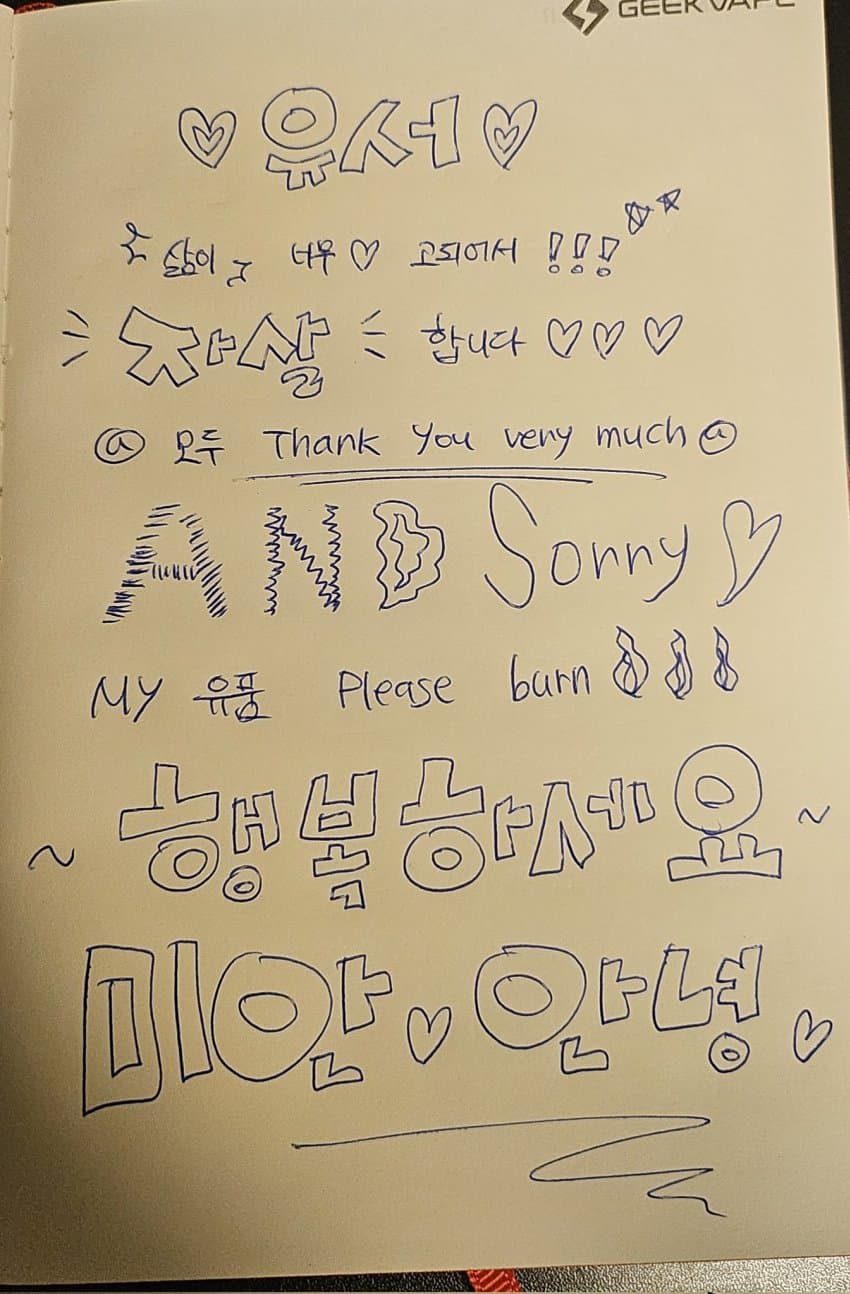 GEEK VAPE
유서
삶이 너무 고되어서 !!!
자살 합니다
@ 모두 Thank You very much @
AND Sorry
My 유품 Please burn
~ 행복하세요 ~
미안 안녕